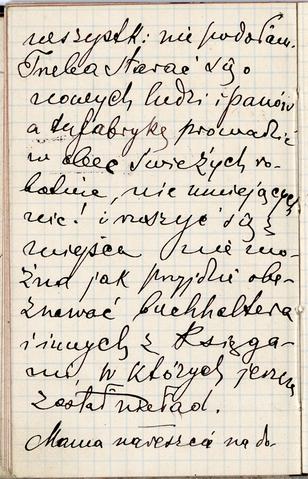 wszystk: nie podołam.
Trzeba starać się o
nowych ludzi i panów
a tu fabrykę prowadzić
w obec świeżych ro-
botnic, nie umiejących
nic! i ruszyć się z
miejsca nie mo-
żna jak przyjdzie obe-
znawać buchhaltera
i innych z Księga-
mi, w których jeszcze
został nieład.
Mama nareszcie na do-